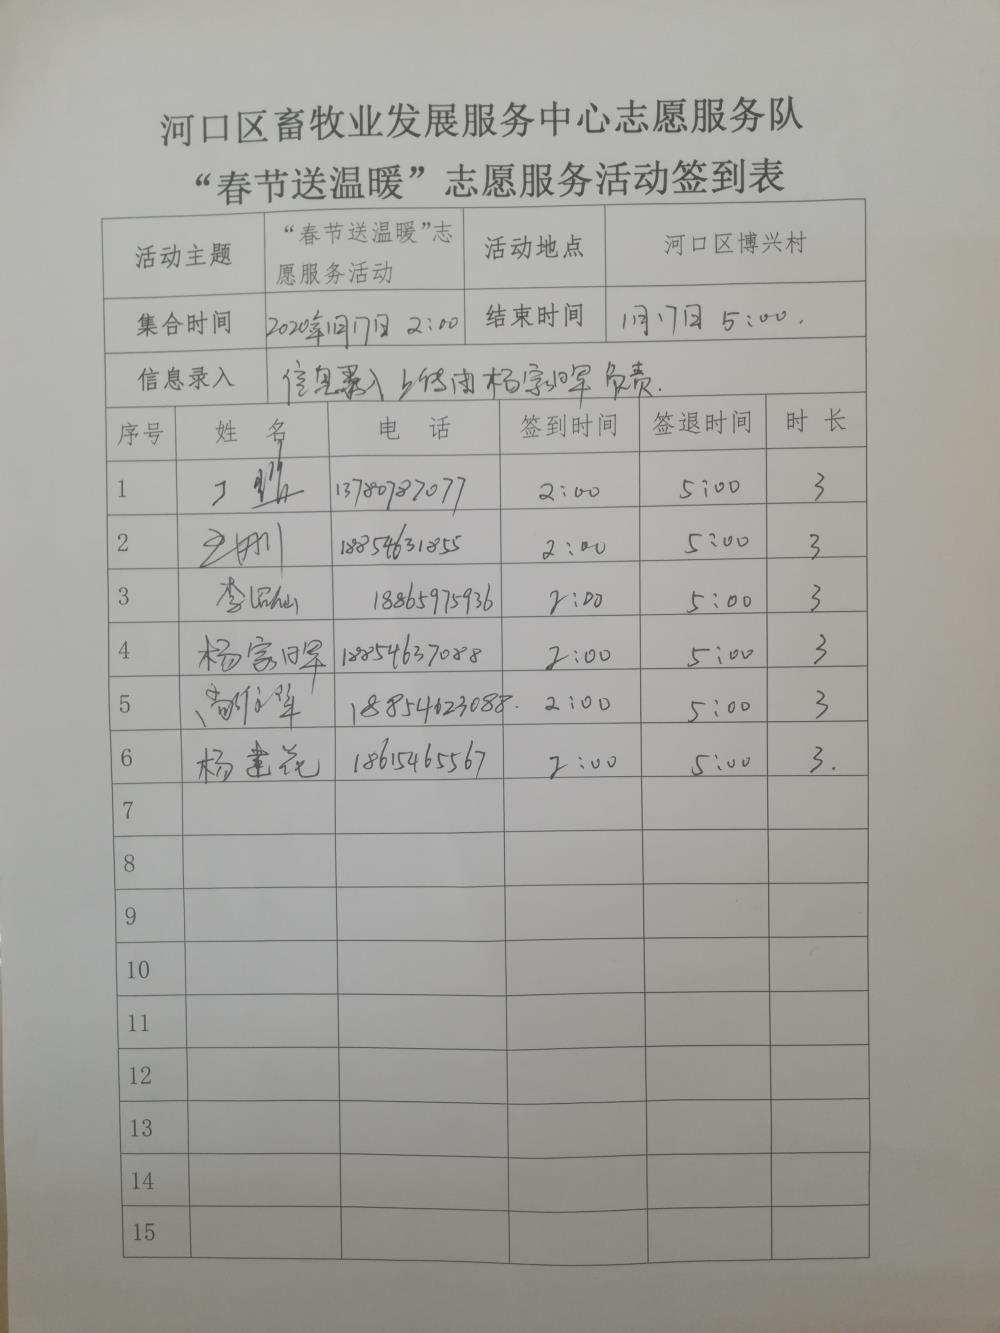 河口区畜牧业发展服务中心志愿服务队
“春节送温暖”志愿服务活动签到表
活动主题 “春节送温暖”志愿服务活动 活动地点 河口区博兴村
集合时间 2020年1月17日 2:00 结束时间 1月17日 5:00.
信息录入 信息录入上传由杨家晖负责.
序号 姓 名 电 话 签到时间 签退时间 时 长
1 丁 13780787077 2:00 5:00 3
2 18854631855 2:00 5:00 3
3 李 18865975936 2:00 5:00 3
4 杨家晖 18854637088 2:00 5:00 3
5 18854623088. 2:00 5:00 3
6 杨建花 18615465567 2:00 5:00 3.
7
8
9
10
11
12
13
14
15